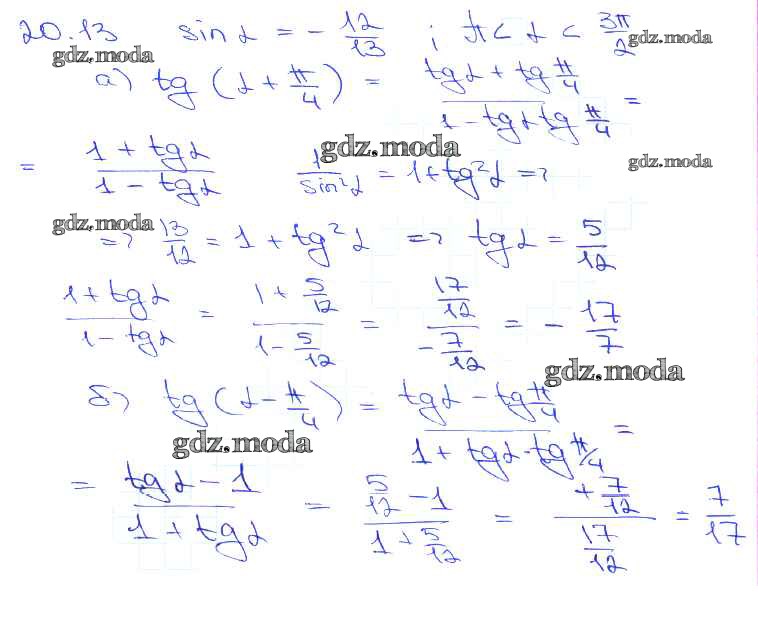 20.13 sin α = - 12/13 ; π < α < 3π/2 gdz.moda
gdz.moda
а) tg (α + π/4) = (tg α + tg π/4)/(1 - tg α tg π/4) =
= (1 + tg α)/(1 - tg α) gdz.moda 1/sin²α = 1 + tg²α => gdz.moda
gdz.moda
=> 13/12 = 1 + tg² α => tg α = 5/12
(1 + tg α)/(1 - tg α) = (1 + 5/12)/(1 - 5/12) = (17/12)/(- 7/12) = - 17/7
gdz.moda
б) tg (α - π/4) = (tg α - tg π/4)/(1 + tg α · tg π/4) =
gdz.moda
= (tg α - 1)/(1 + tg α) = (5/12 - 1)/(1 + 5/12) = (+ 7/12)/(17/12) = 7/17